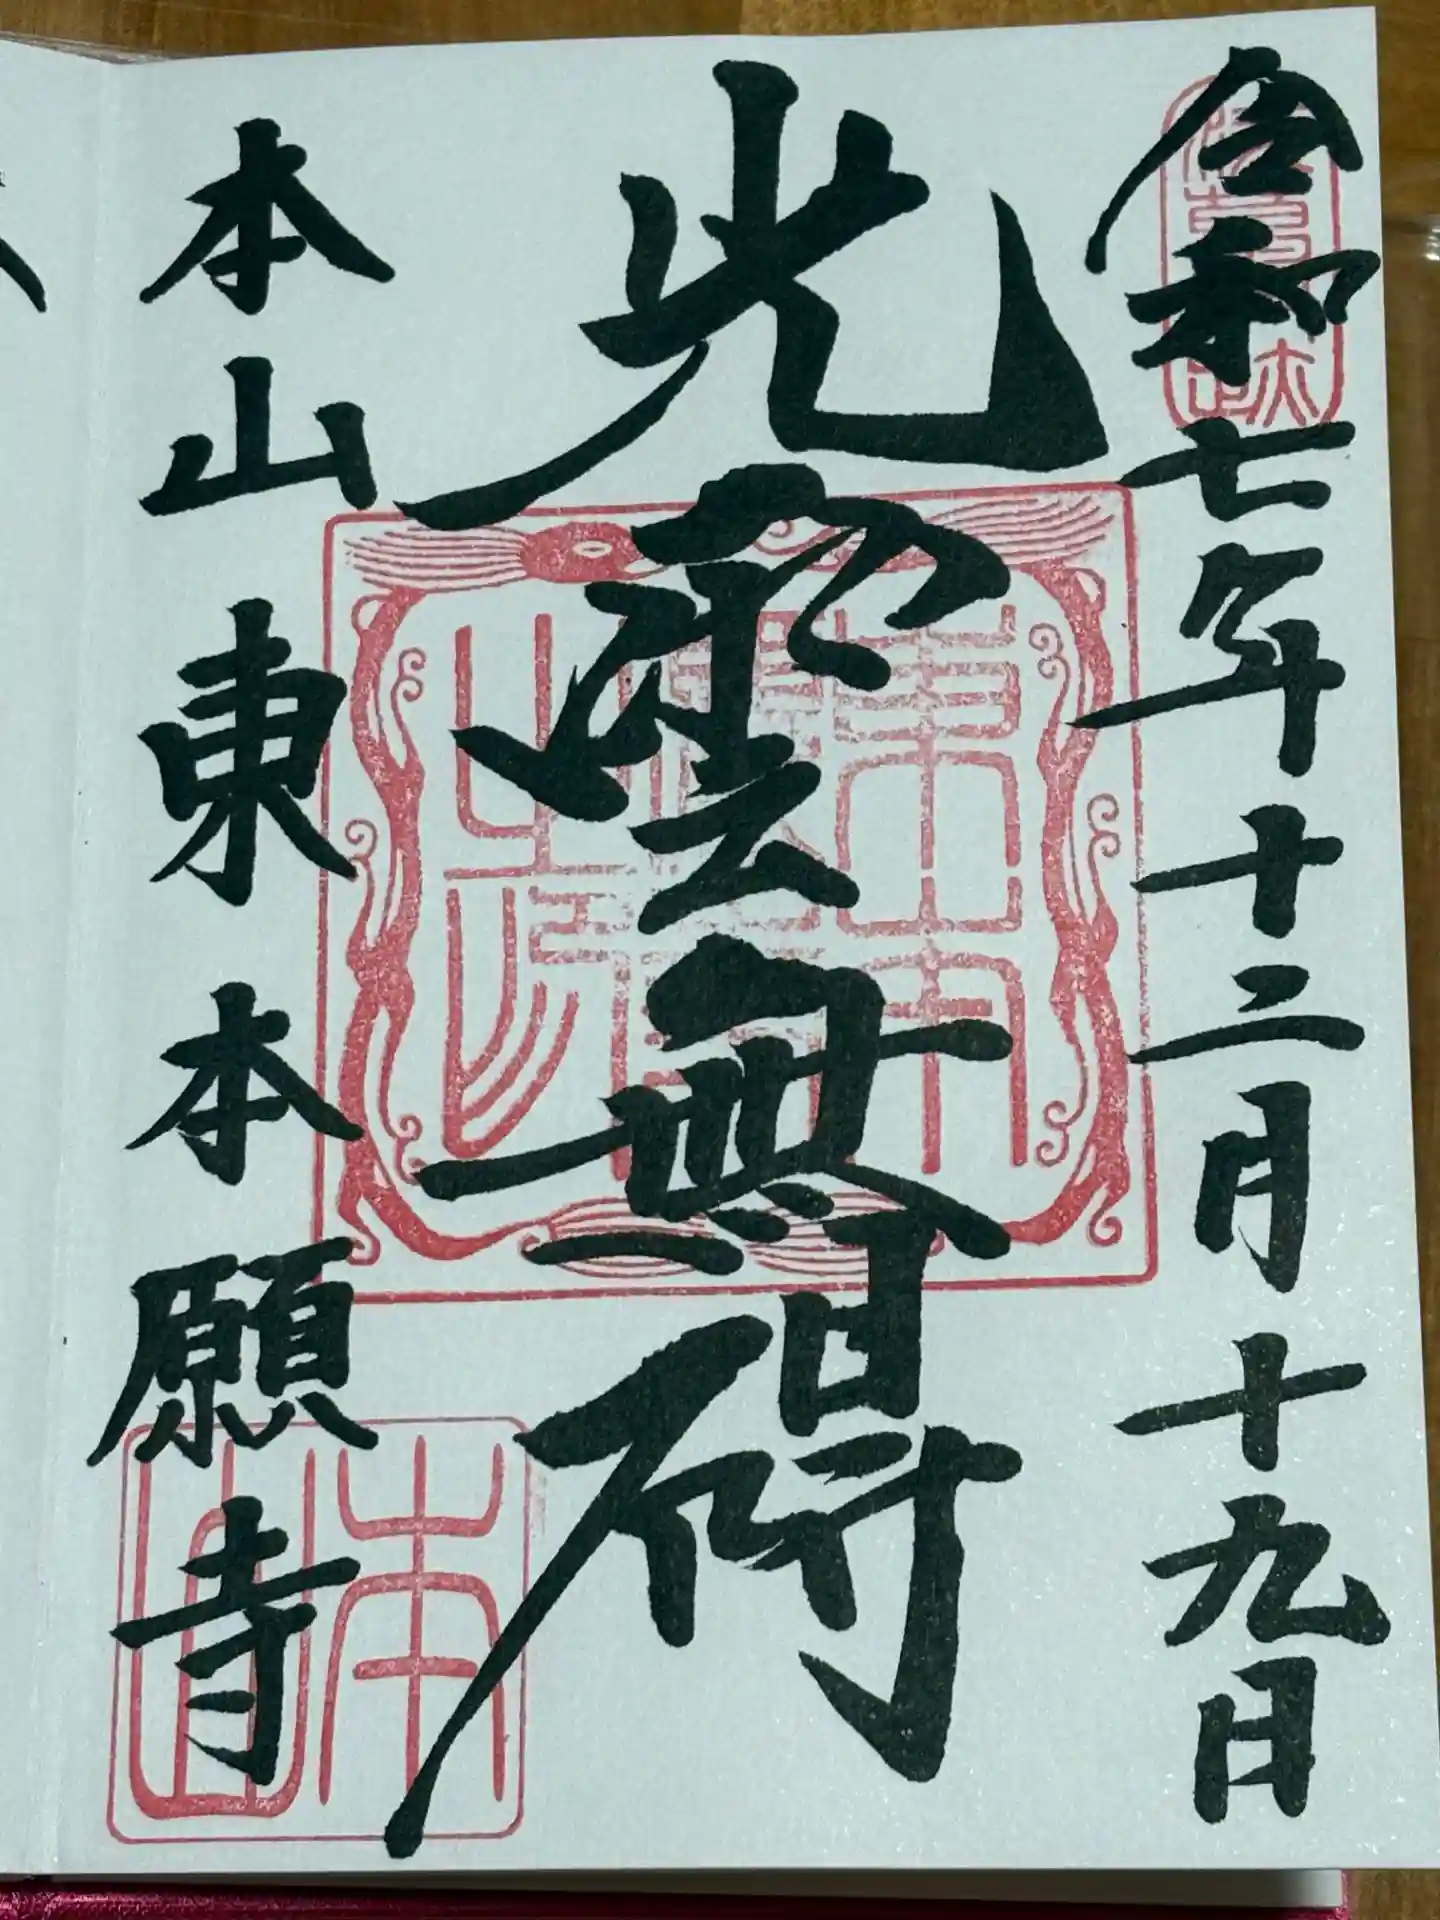 令和七年十二月十九日
光雲無碍
本山東本願寺
本山